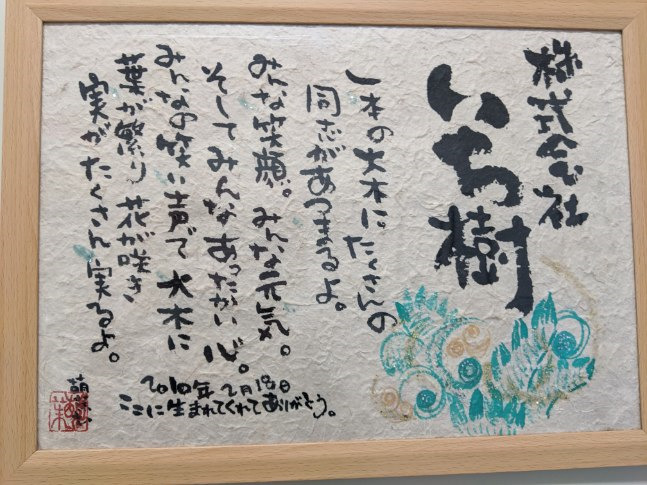 株式会社
いち樹
一本の大木に。たくさんの
同志があつまるよ。
みんな笑顔。みんな元気。
そしてみんなあったかい心。
みんなの笑い声で 大木に
葉が繁り 花が咲き
実がたくさん実るよ。
2010年 2月18日
ここに生まれてくれてありがとう。